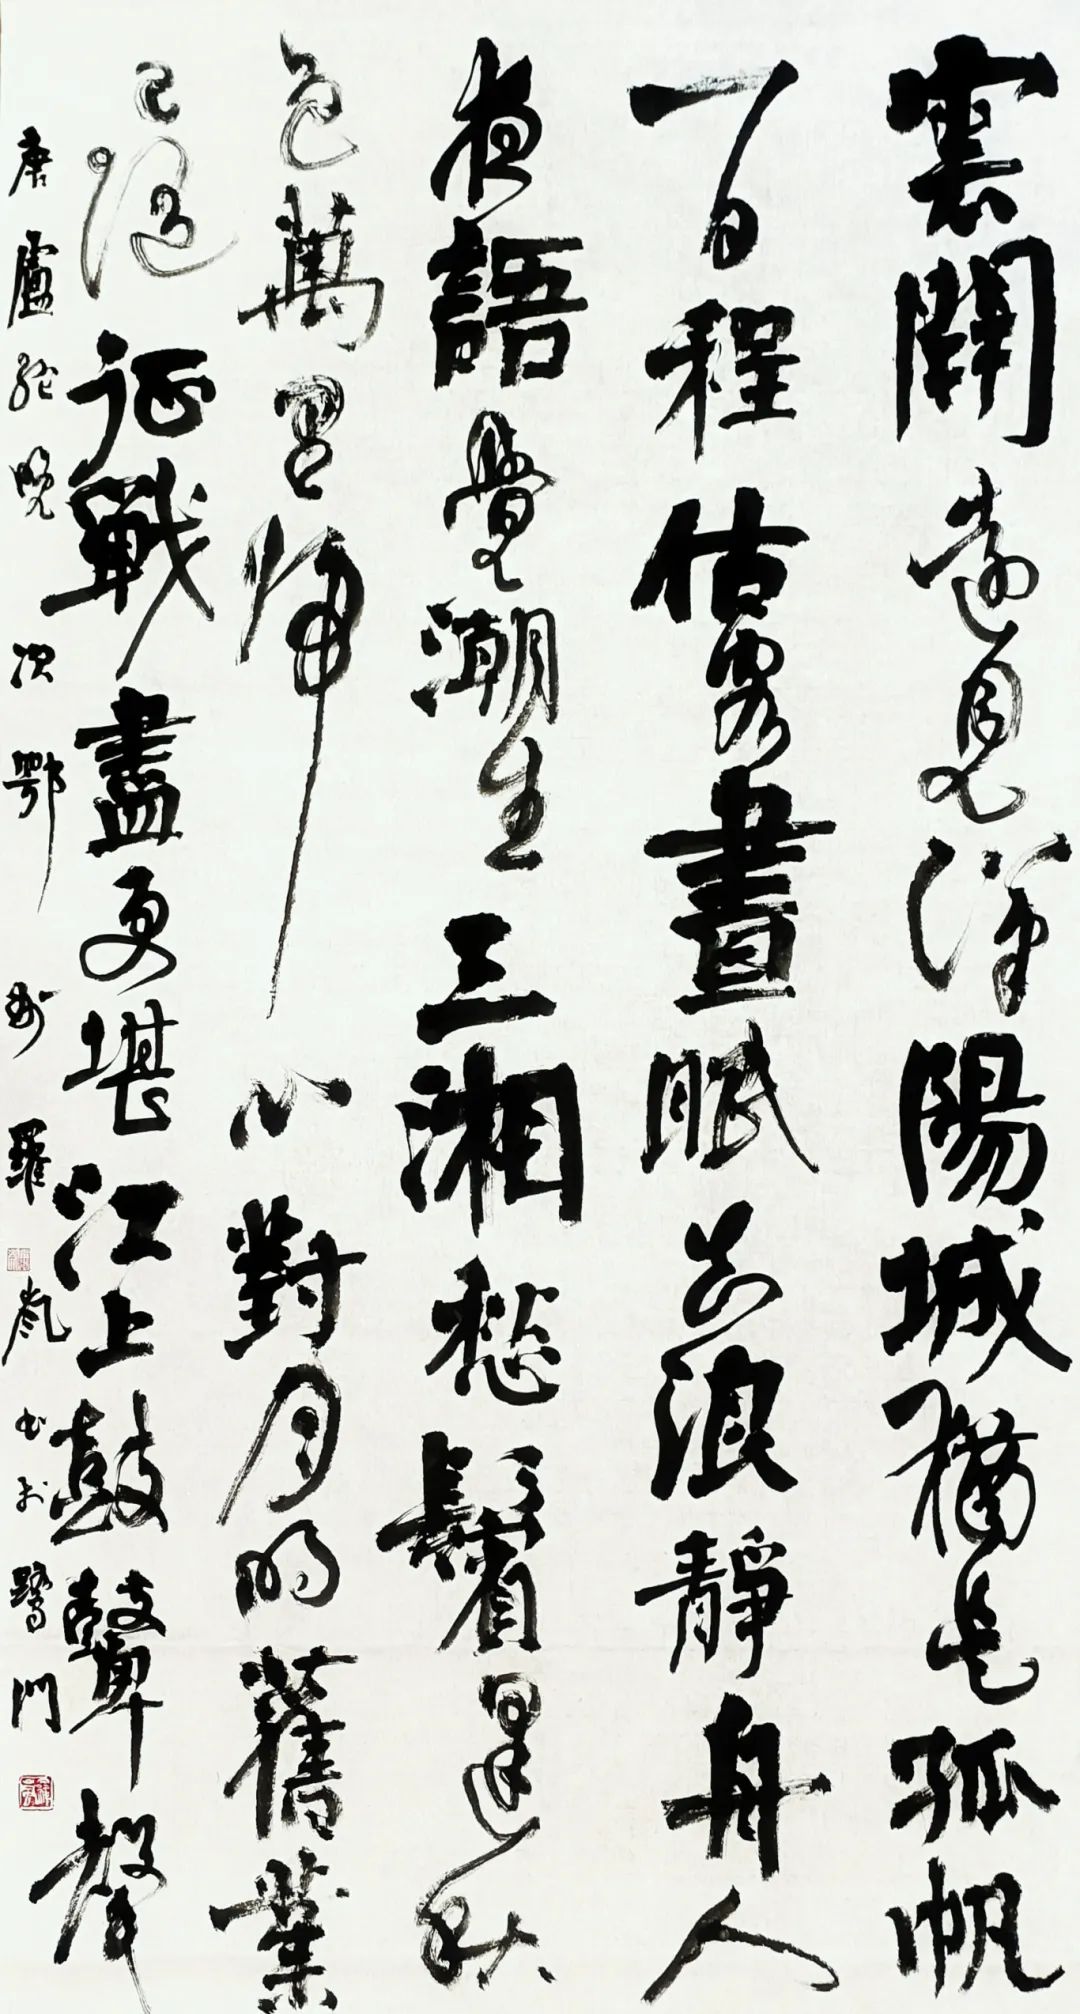 雲開遠見漢陽城猶是孤帆
一日程估客晝眠知浪靜舟人
夜語覺潮生三湘愁鬢逢秋
色萬里歸心對月明舊業
已隨征戰盡更堪江上鼓鼙聲
唐盧綸晚次鄂州羅凱書於鷺門